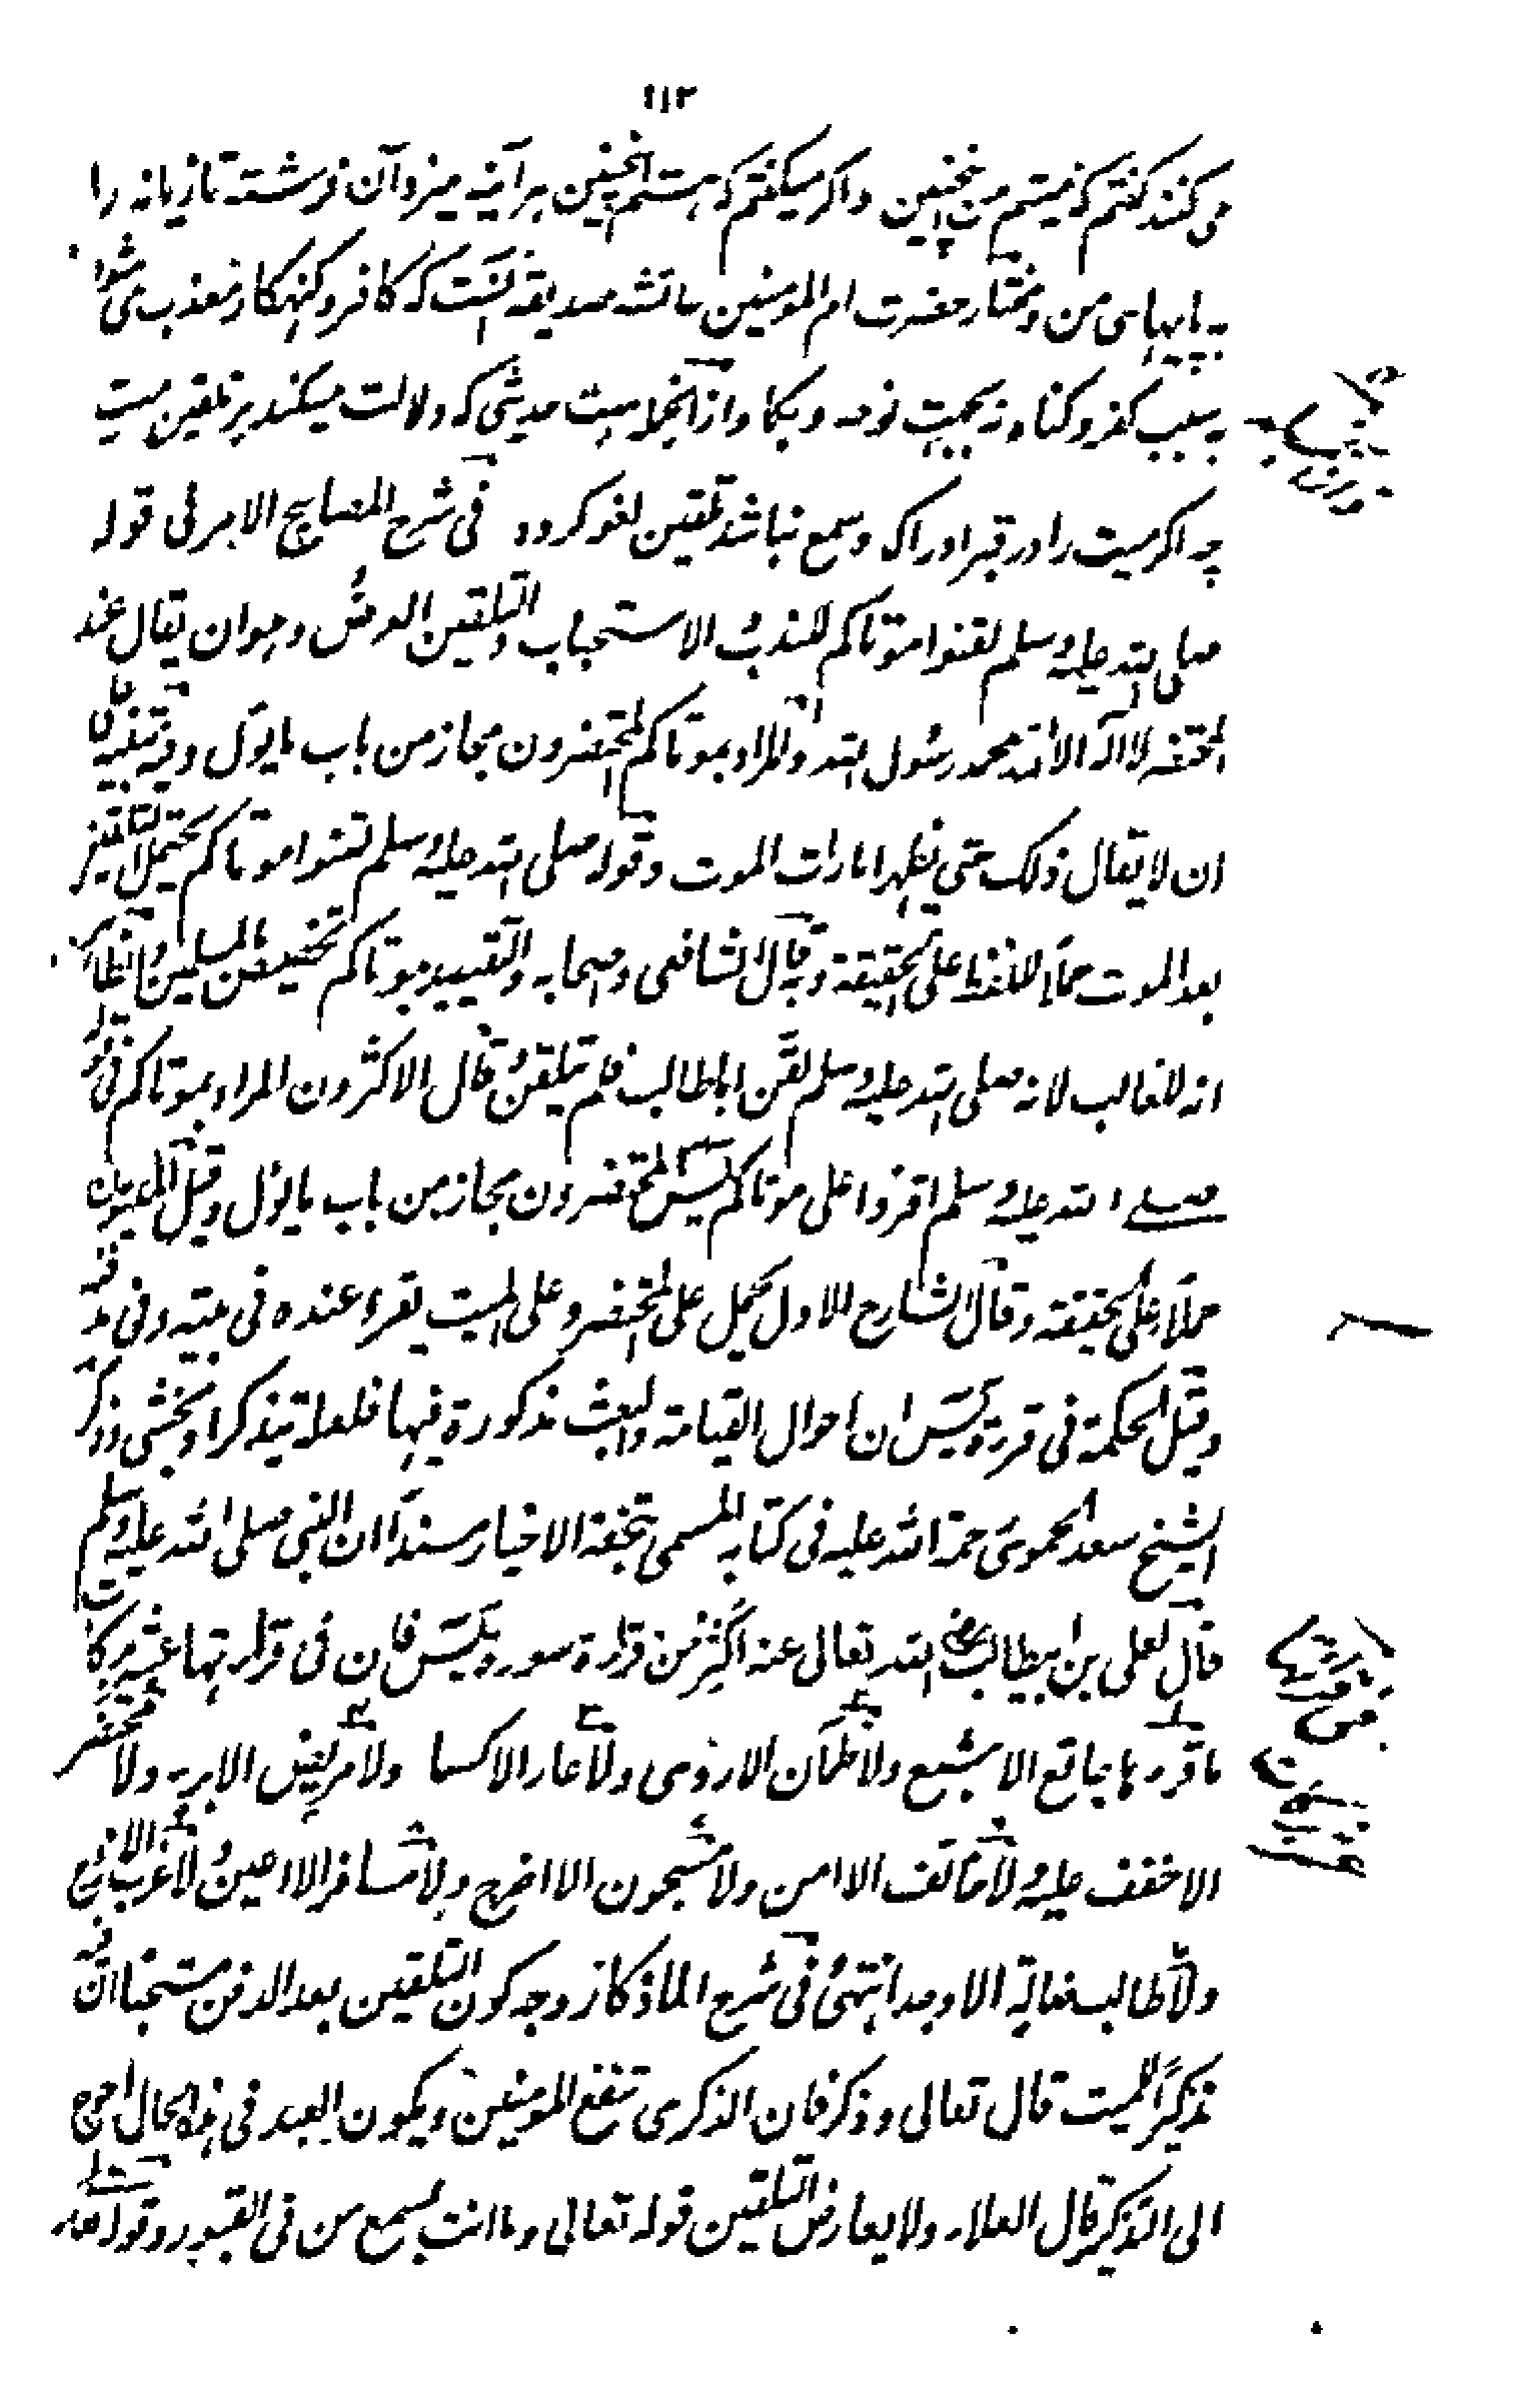 ١١٣
می کنند گفتم که نیستم من اینچنین و اگر میگفتم که هستم اینچنین هر آینه میزد آن فرشته تازیانه را
به پایهای من و مختار حضرت ام المومنین عائشه صدیقه آنست که کافر و گنهکار معذب می شود
به سبب کفر و گناه نه بجهت نوحه و بکا و ازانجمله است حدیثی که دلالت میکند بر تلقین میت
چه اگر میت را در قبر ادراک و سمع نباشد تلقین لغو گردد فی شرح المصابیح الامر فی قوله
صلی الله علیه وسلم لقنوا موتاکم للندب والاستحباب والتلقین العرض وهو ان یقال عند
المحتضر لا اله الا الله محمد رسول الله والمراد بموتاکم المحتضرون مجاز من باب ما یول وفیه تنبیه علی
ان لا یقال ذلک حتی یظهر امارات الموت وقوله صلی الله علیه وسلم لقنوا موتاکم یحتمل التلقین
بعد الموت حملا للفظ علی الحقیقة وبه قال الشافعی واصحابه والتقیید بموتاکم تخصیص من المسلمین نظرا الی
انه الغالب لانه صلی الله علیه وسلم لقن اباطالب فلم یتلقن وقال الاکثرون المراد بموتاکم فی قوله
صلی الله علیه وسلم اقرؤا علی موتاکم یس المحتضرون مجاز من باب ما یؤل وقیل المدفونون
حملا علی الحقیقة وقال الشارح للاول یحمل علی المحتضر وعلی المیت یقراء عنده فی بیته وفی مدفنه
وقیل الحکمة فی قرءة یس ان احوال القیامة والبعث مذکورة فیها فلعله یتذکر او یخشی وذکر
الشیخ سعد الحموی رحمة الله علیه فی کتابه المسمی بتحفة الاخیار سنداً ان النبی صلی الله علیه وسلم
قال لعلی بن ابیطالب رضی الله تعالی عنه اکثر من قراءة سورة یس فان فی قرائتها عشر برکات
ما قرءها جائع الا شبع ولا ظمان الا روی ولا عار الا کسا ولا مریض الا برء ولا محتضر
الا خفف علیه ولا خائف الا امن ولا مسجون الا اخرج ولا مسافر الا اعین ولا عزب الا زوج
ولا طالب ضالة الا وجد انتهی وفی شرح الاذکار وجه کون التلقین بعد الدفن مستحبا ان فیه
تذکیراً للمیت قال تعالی وذکر فان الذکری تنفع المومنین ویکون العبد فی هذا الحال احوج
الی التذکیر قال العلماء ولا یعارض التلقین قوله تعالی وما انت بمسمع من فی القبور وقوله علیه